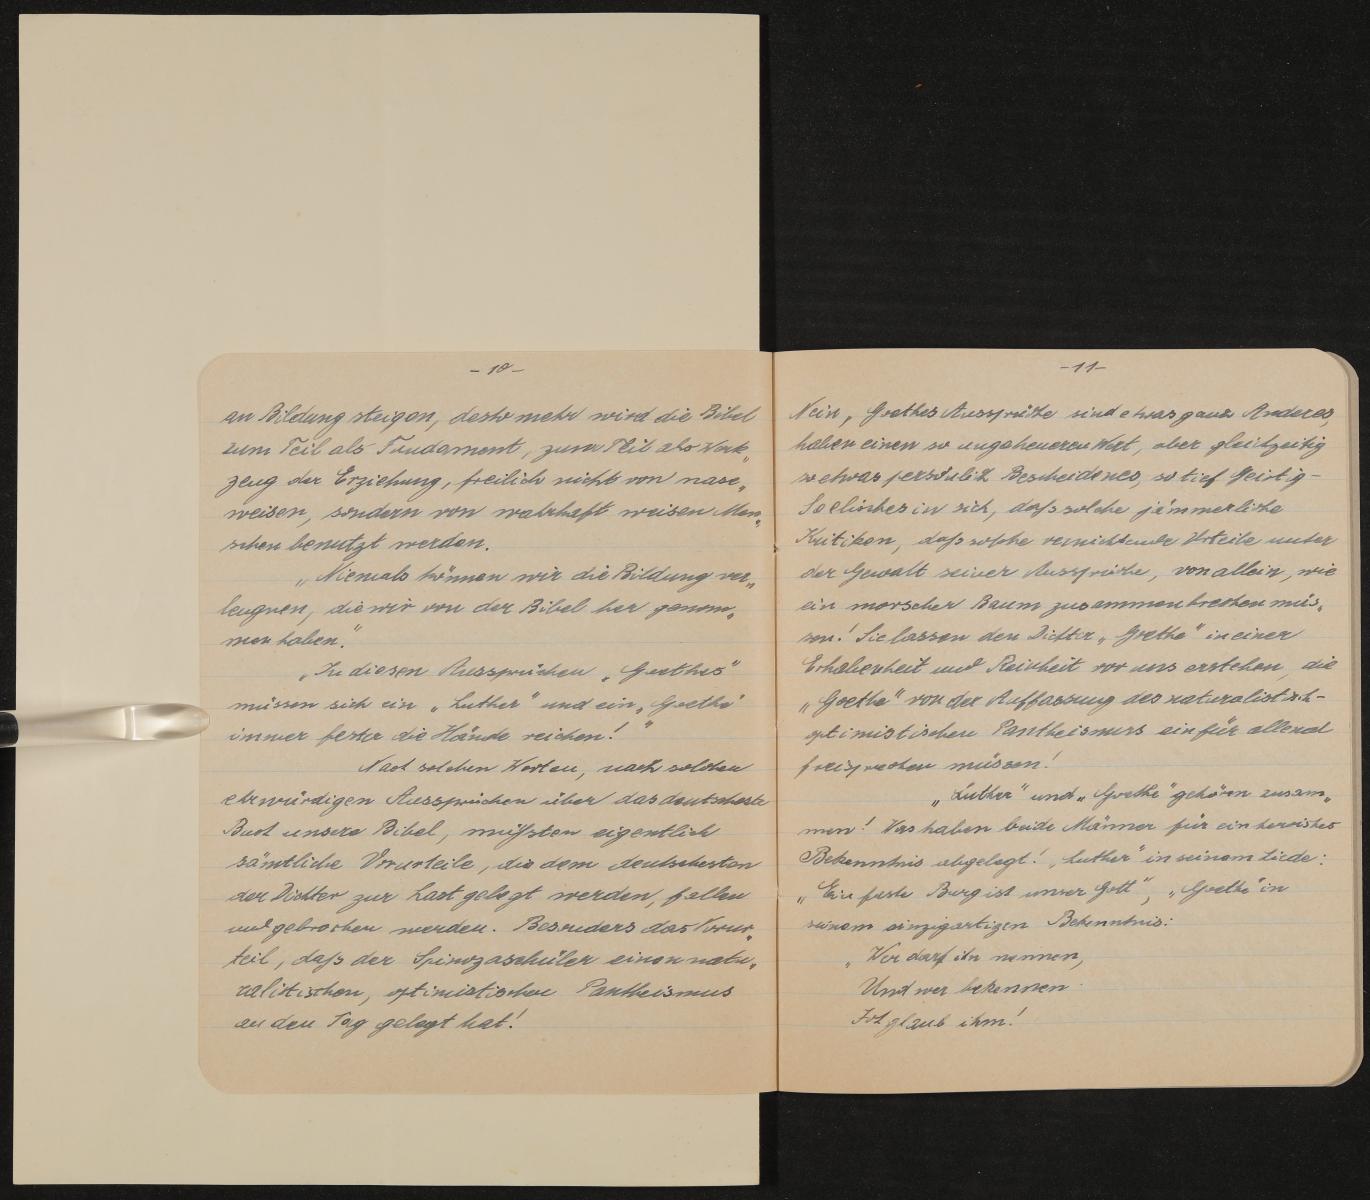 - 10 -
an Bildung steigen, desto mehr wird die Bibel
zum Teil als Fundament, zum Theil als Werk„
zeug der Erziehung, freilich nicht von nase„
weisen, sondern von wahrhaft weisen Men„
schen benutzt werden.
„Niemals können wir die Bildung ver„
leugnen, die wir von der Bibel her genom„
men haben."
„In diesen Aussprüchen „Goethes"
müssen sich ein „Luther" und ein „Goethe"
immer fester die Hände reichen!"
Nach solchen Worten, nach solchen
ehrwürdigen Aussprüchen über das deutscheste
Buch unsere Bibel, müßten eigentlich
sämtliche Vorurteile, die dem deutschesten
der Dichter zur Last gelegt werden, fallen
und gebrochen werden. Besonders das Vorur„
teil, daß der Spinozaschüler einen natu„
ralistischen, optimistischen Pantheismus
an den Tag gelegt hat!
- 11 -
Nein, Goethes Aussprüche sind etwas ganz Anderes,
haben einen so ungeheueren Wert, aber gleichzeitig
so etwas persönlich Bescheidenes, so tief Geistig-
Seelisches in sich, daß solche jämmerliche
Kritiken, daß solche vernichtende Urteile unter
der Gewalt seiner Aussprüche, von allein, wie
ein morscher Baum zusammenbrechen müs„
sen! Sie lassen den Dichter „Goethe" in einer
Erhabenheit und Reinheit vor uns erstehen, die
„Goethe" von der Auffassung des naturalistisch-
optimistischen Pantheismus ein für allemal
freisprechen müssen!
„Luther" und „Goethe" gehören zusam„
men! Was haben beide Männer für ein heroisches
Bekenntnis abgelegt! „Luther" in seinem Liede:
„Ein feste Burg ist unser Gott", „Goethe" in
seinem einzigartigen Bekenntnis:
„Wer darf ihn nennen,
Und wer bekennen
Ich glaub ihm!